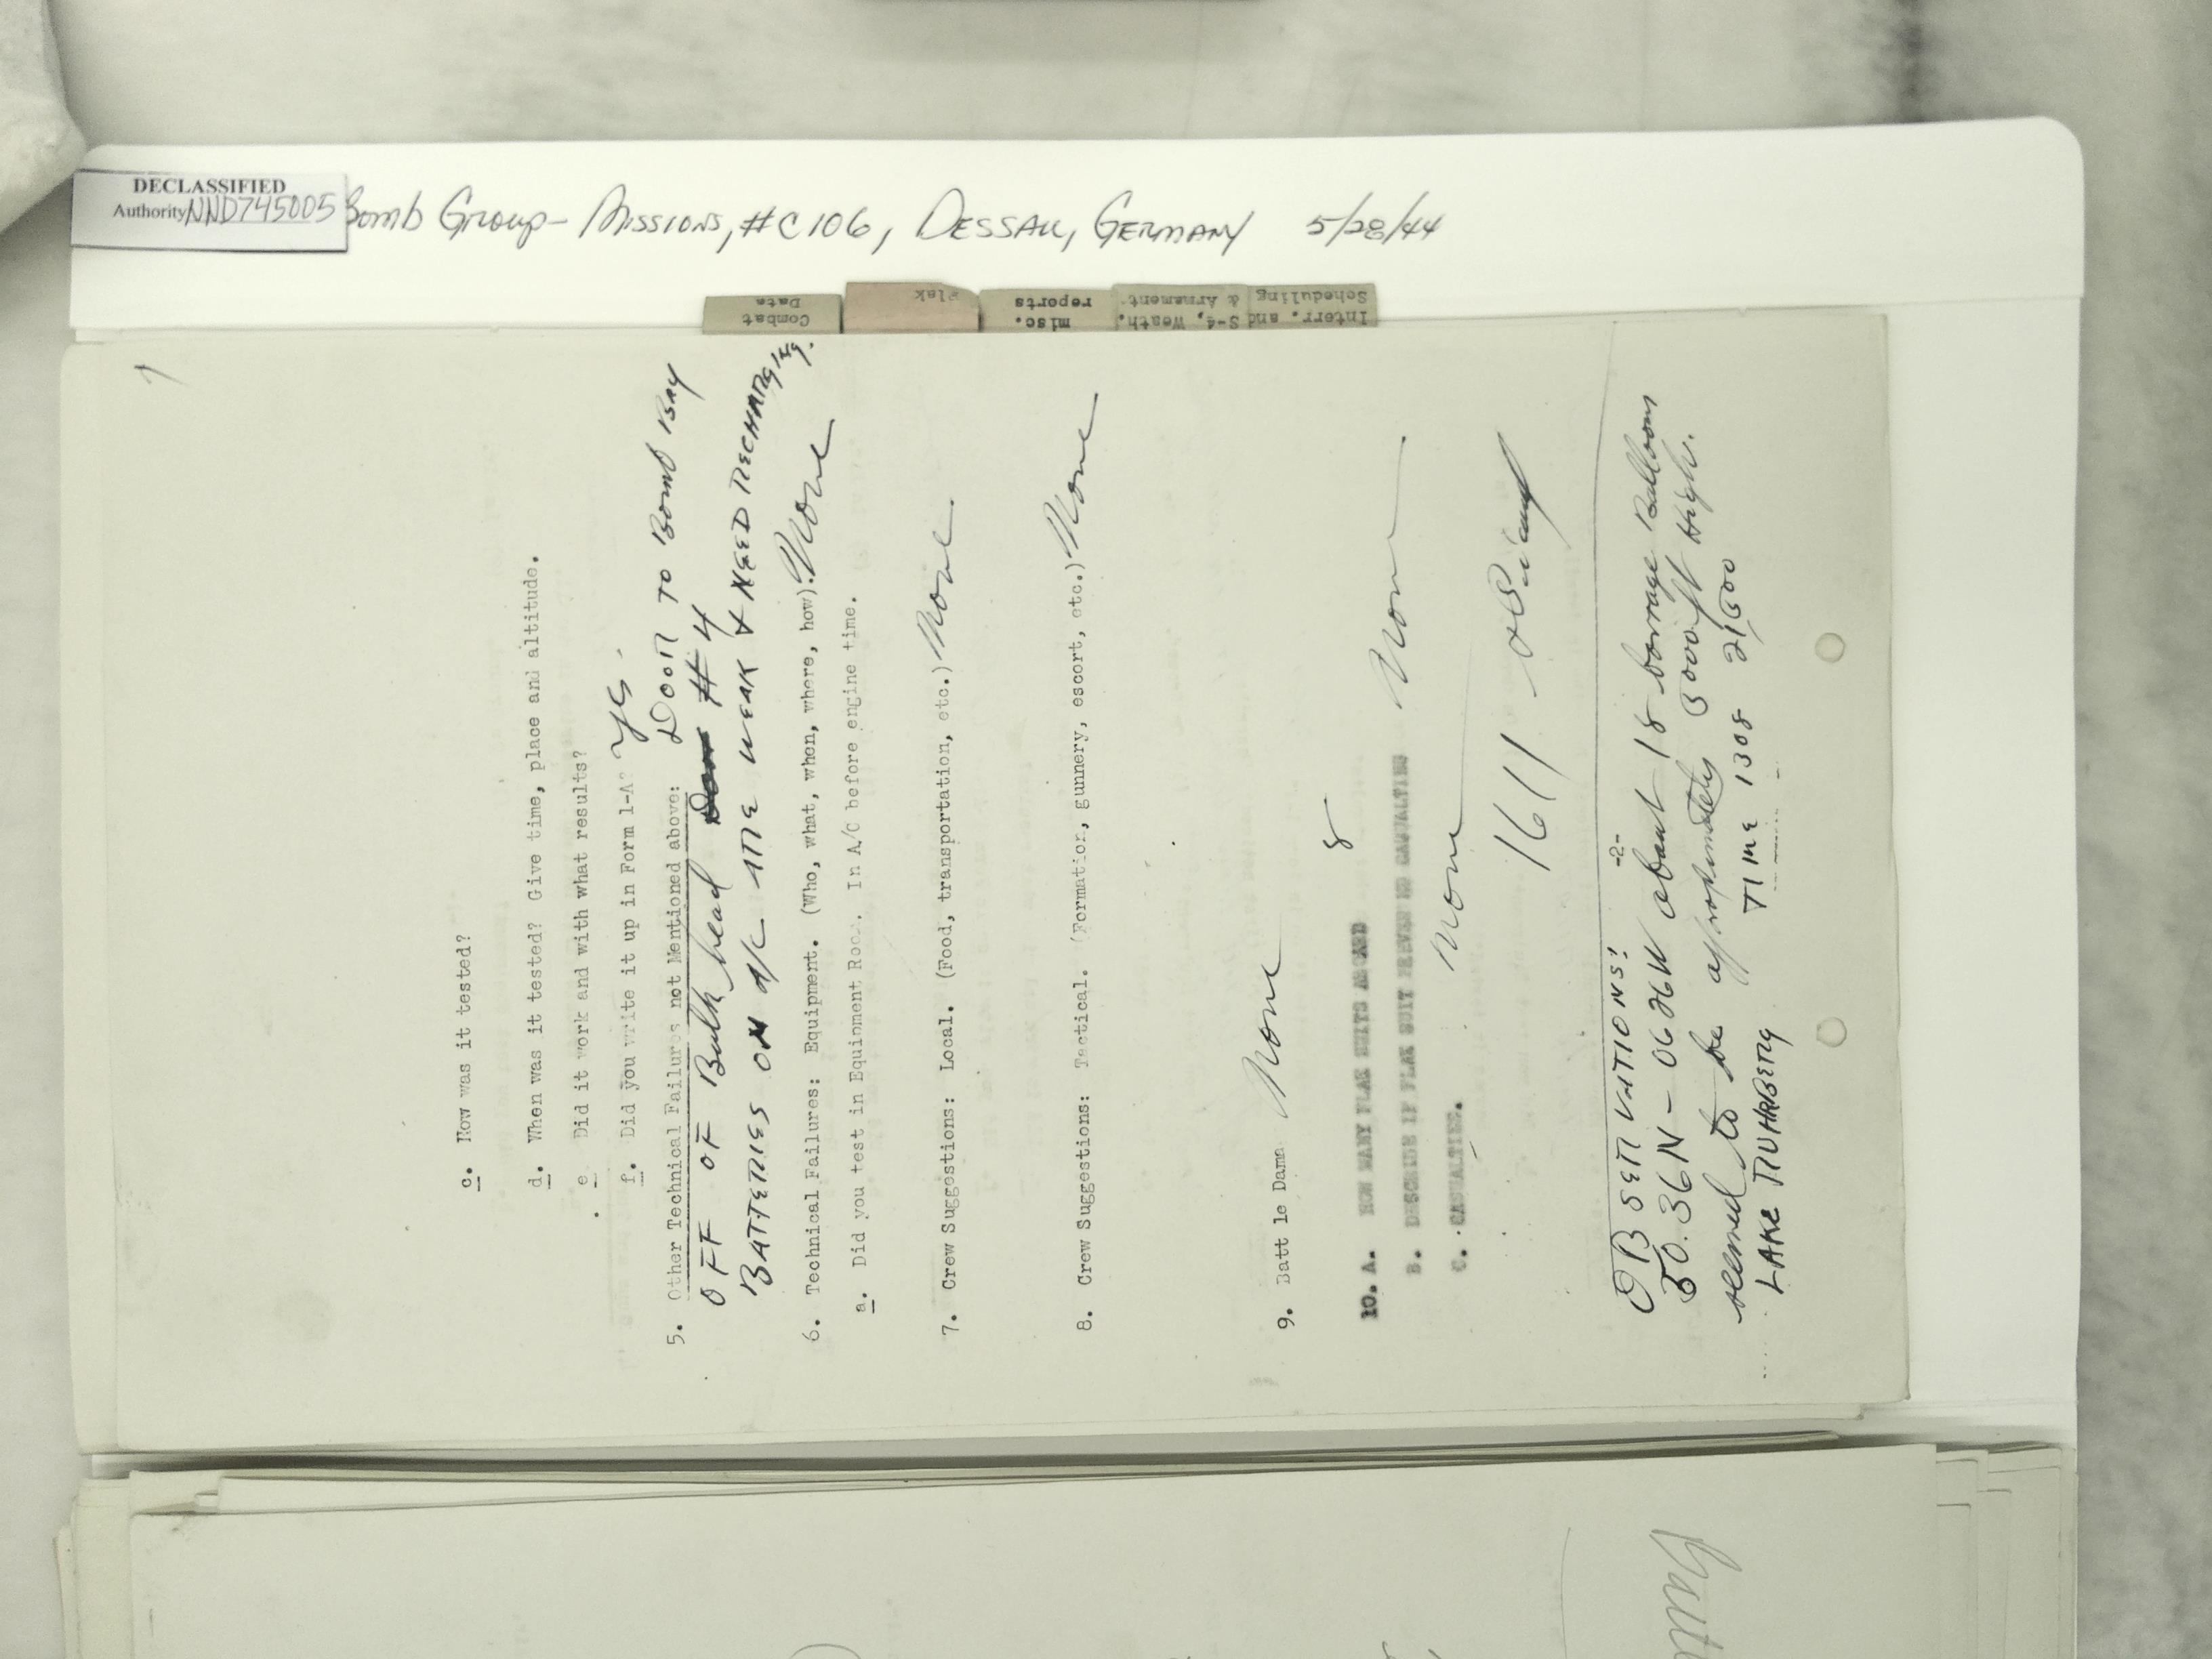 DECLASSIFIED
Authority NND745005
Bomb Group - Missions, #C106, DESSAU, GERMANY 5/28/44
Combat Data
Flak
misc. reports
S-4, Weath. & Armament
Interr. and Scheduling
c. How was it tested?
d. When was it tested? Give time, place and altitude.
e Did it work and with what results?
f. Did you write it up in Form 1-A? Yes.
5. Other Technical Failures not Mentioned above: DOOR TO BOMB BAY
OFF OF Bulk head #4
BATTERIES ON A/C ARE WEAK & NEED RECHARGING.
6. Technical Failures: Equipment. (Who, what, when, where, how). None
a. Did you test in Equipment Room. In A/C before engine time.
7. Crew Suggestions: Local. (Food, transportation, etc.) None.
8. Crew Suggestions: Tactical. (Formation, gunnery, escort, etc.) None
9. Batt le Dama None
10. A. HOW MANY FLAK HITS ABOARD 8
B. DESCRIBE IF FLAK SUIT PREVENTED CAUALTIES None
C. CASUALTIES. None
1611
-2-
OBSERVATIONS!
50.36N - 0626W about 18 barrage Balloons
seemed to be approximately 5000 ft High.
LAKE TIME 1308 21600